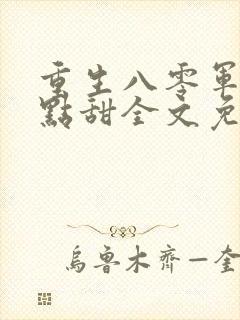 重生八零軍
點甜全文免
烏魯木齊—奎